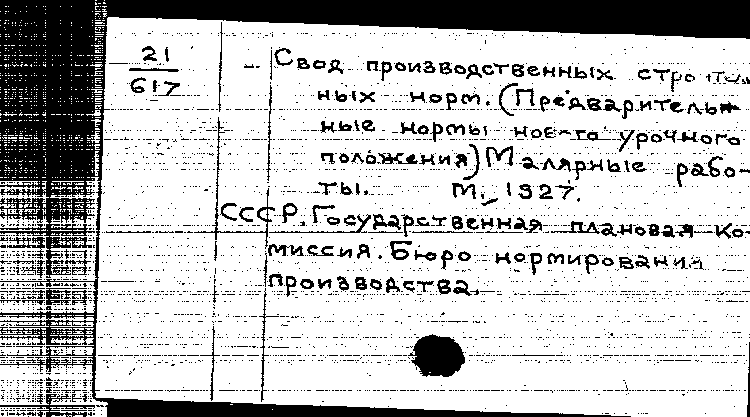 21
617
Свод производственных строитель
ных норм. (Предваритель-
ные нормы ново-го урочного
положения) Малярные рабо-
ты. М., 1927.
СССР. Государственная плановая Ко-
миссия. Бюро нормирования
производства.